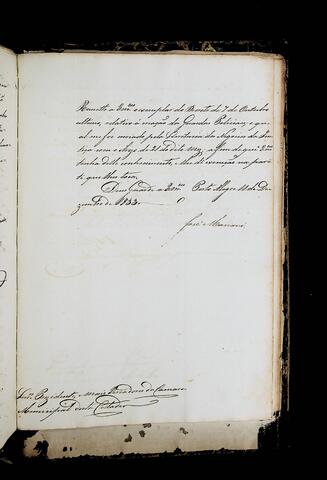 Remetto a Vmces o exemplar do Decreto de 7 de Outubro
ultimo, relativo á creação da Guardas Policiaes, o qual
me foi enviado pela Secretaria dos Negocios da Jus-
tiça com o Avizo de 21 do dito mez, a fim de que Vmces
tenhão delle conhecimento, e lhe dê execução na par-
te que lhes toca.
Deus Guarde a Vmces Porto Alegre 11 de De-
zembro de 1833.
José Mariani
Snrs. Presidente, e mais Vereadores da Camara
Municipal desta Cidade